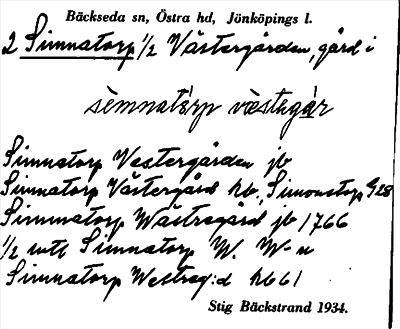 Bäckseda sn, Östra hd, Jönköpings l.
2 Simnatorp 1/2 Västergården, gård i
sèmnatårp væstɐgár
Simnatorp Vestergården jb
Simnatorp Västergård hb., Simonstorp G28
Simmnatorp Wästregård jb 1766
1/2 mtl Simnatorp W. W-n
Simnatorp Westreg:d hb61
Stig Bäckstrand 1934.